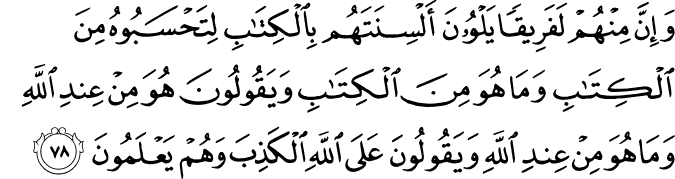 وَإِنَّ مِنْهُمْ لَفَرِيقًا يَلْوُۥنَ أَلْسِنَتَهُم بِٱلْكِتَٰبِ لِتَحْسَبُوهُ مِنَ
ٱلْكِتَٰبِ وَمَا هُوَ مِنَ ٱلْكِتَٰبِ وَيَقُولُونَ هُوَ مِنْ عِندِ ٱللَّهِ
وَمَا هُوَ مِنْ عِندِ ٱللَّهِ وَيَقُولُونَ عَلَى ٱللَّهِ ٱلْكَذِبَ وَهُمْ يَعْلَمُونَ ٧٨